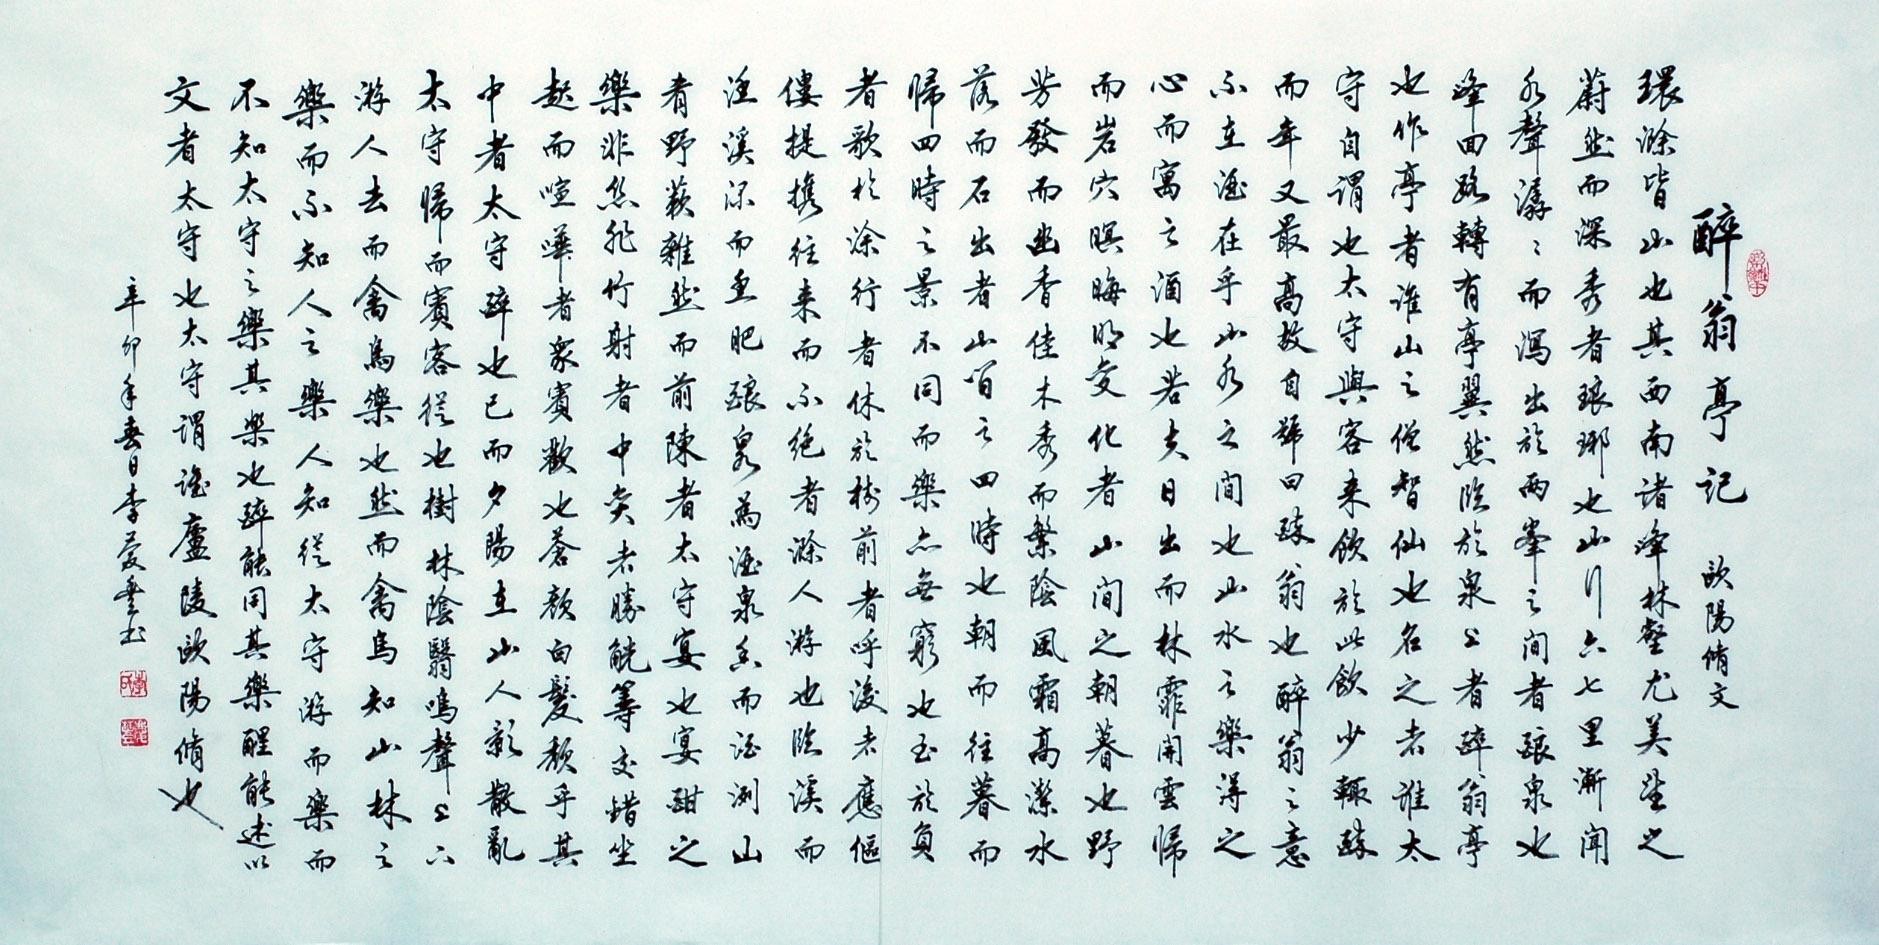 醉翁亭记 欧陽脩文
環滁皆山也其西南诸峰林壑尤美望之
蔚然而深秀者琅琊也山行六七里漸闻
水聲潺〻而瀉出於两峯之间者酿泉也
峰回路轉有亭翼然临於泉上者醉翁亭
也作亭者谁山之僧智仙也名之者谁太
守自谓也太守與客来饮於此飲少輒醉
而年又最高故自號曰醉翁也醉翁之意
不在酒在乎山水之间也山水之樂得之
心而寓之酒也若夫日出而林霏開雲归
而岩穴暝晦明变化者山间之朝暮也野
芳發而幽香佳木秀而繁陰風霜高潔水
落而石出者山间之四時也朝而往暮而
帰四時之景不同而樂亦無窮也至於負
者歌於涂行者休於树前者呼後者應傴
僂提携往来而不绝者滁人游也临溪而
渔溪深而鱼肥酿泉為酒泉香而酒洌山
肴野蔌雜然而前陳者太守宴也宴酣之
樂非丝非竹射者中奕者勝觥筹交错坐
起而喧嘩者衆賓歡也蒼顔白髮颓乎其
中者太守醉也已而夕陽在山人影散亂
太守帰而賓客從也樹林陰翳鸣聲上下
游人去而禽鸟樂也然而禽鸟知山林之
樂而不知人之樂人知從太守游而樂而
不知太守之樂其樂也醉能同其樂醒能述以
文者太守也太守谓谁廬陵欧陽脩也
辛卯年春日李